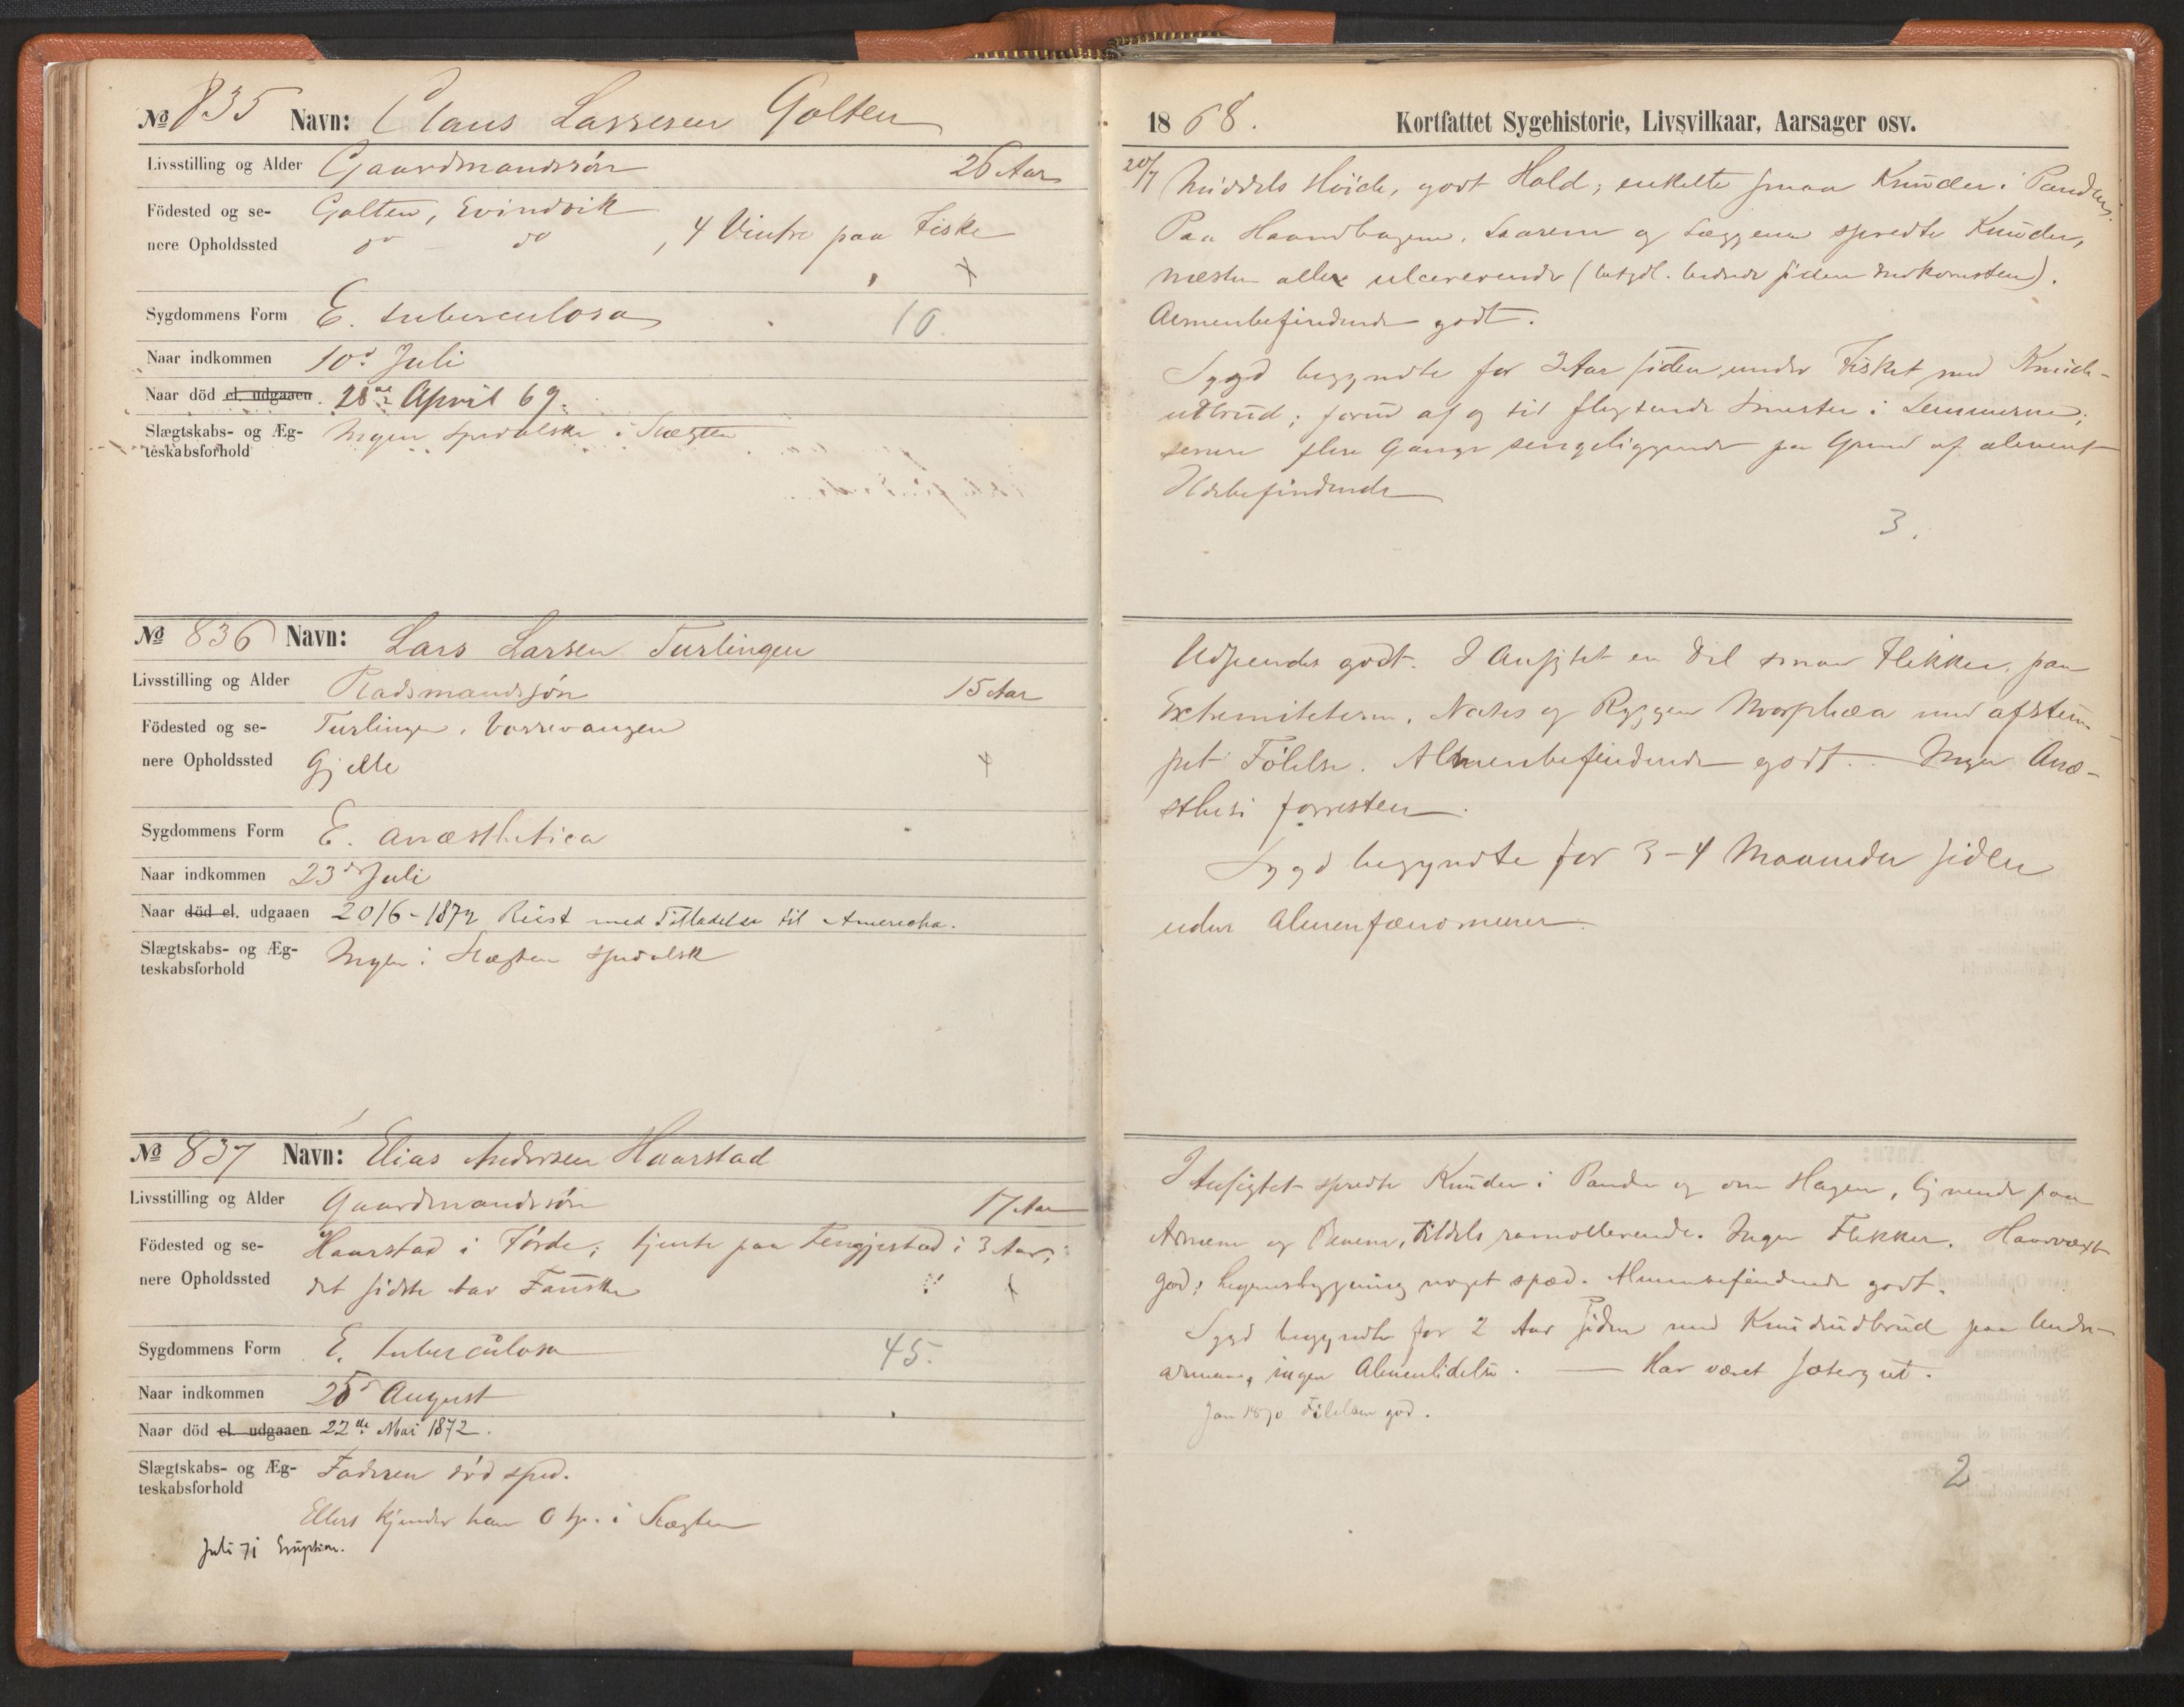 No 835 Navn: Claus Lassesen Golten
Livsstilling og Alder Gaardmandssön 26 Aar
Födested og se- Golten, Evindvik
nere Opholdssted do do, 4 Vintre paa Fiske
x
Sygdommens Form E. tuberculosa 10.
Naar indkommen 10d Juli
Naar död el. udgaaen 28de April 69.
Slægtskabs- og Æg- Ingen spedalske i Slægten
teskabsforhold
No 836 Navn: Lars Larsen Turlingen
Livsstilling og Alder Pladsmandssön 15 Aar
Födested og se- Turlingen, Vossevangen
nere Opholdssted Gjelle x
Sygdommens Form E. anæsthetica
Naar indkommen 23d Juli
Naar död el. udgaaen 20/6-1872 Reist med Tilladelse til Amerika.
Slægtskabs- og Æg- Ingen i Slægten spedalsk
teskabsforhold
No 837 Navn: Elias Andersen Haarstad
Livsstilling og Alder Gaardmandssön 17 Aar
Födested og se- Haarstad i Förde; tjente paa Tengjestad i 3 Aar;
nere Opholdssted det sidste Aar Fauske x
Sygdommens Form E. tuberculosa 45.
Naar indkommen 25d August
Naar död el. udgaaen 22de Mai 1872.
Slægtskabs- og Æg- Faderen död sped.
teskabsforhold
Ellers kjender han 0 sp. i Slægten
Juli 71 Eruption.
1868. Kortfattet Sygehistorie, Livsvilkaar, Aarsager osv.
20/7 Middels Höide, godt Hold; enkelte smaa Knuder i Panden.
Paa Haandbagene, Laarene og Læggene spredte Knuder,
næsten alle ulcererende (betydl. bedrede siden Indkomsten).
Almenbefindende godt.
Sygd begyndte for 3 Aar siden under Fisket med Knude-
udbrud; forud af og til flygtende Smerter i Lemmerne;
senere flere Gange sengeliggende paa Grund af alment
Ildebefindende
3.
Udseende godt. I Ansigtet en Del smaa Flekker, paa
Extremiteterne, Nates og Ryggen Morphæa med afstum-
pet Fölelse. Almenbefindende godt. Ingen Anæ-
sthesi forresten.
Sygd begyndte for 3-4 Maaneder siden
uden Almenfænomener.
I Ansigtet spredte Knuder i Panden og om Hagen, lignende paa
Armene og Benene, tildels ramollerende. Ingen Flekker. Haarvæxt
god; Legemsbygning noget spæd. Almenbefindende godt.
Sygd begyndte for 2 Aar siden med Knudeudbrud paa Under-
armene, ingen Almenlidelse. — Har været sætergut.
Jan 1870 Fölelsen god.
2